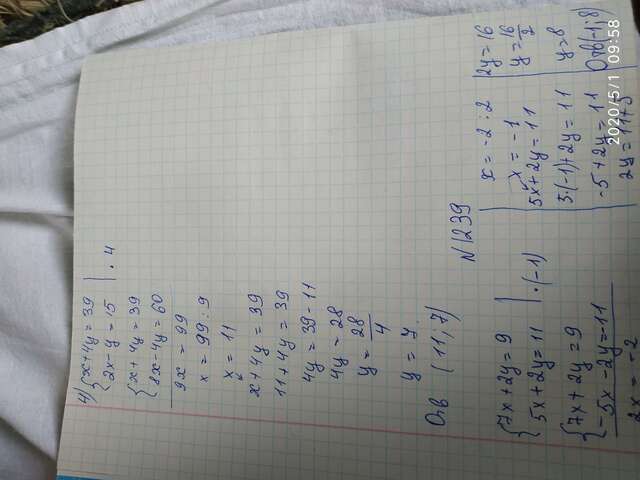 4) { x + 4y = 39
2x - y = 15 | · 4
{ x + 4y = 39
8x - 4y = 60
9x = 99
x = 99 : 9
x = 11
x + 4y = 39
11 + 4y = 39
4y = 39 - 11
4y = 28
y = 28/4
y = 7
Отв (11; 7)
N1239
{ 7x + 2y = 9
5x + 2y = 11 | · (-1)
{ 7x + 2y = 9
-5x - 2y = -11
2x = -2
x = -2 : 2
x = -1
5x + 2y = 11
5·(-1) + 2y = 11
-5 + 2y = 11
2y = 11 + 5
2y = 16
y = 16/2
y = 8
Отв (-1; 8)
2020/5/1 09:58